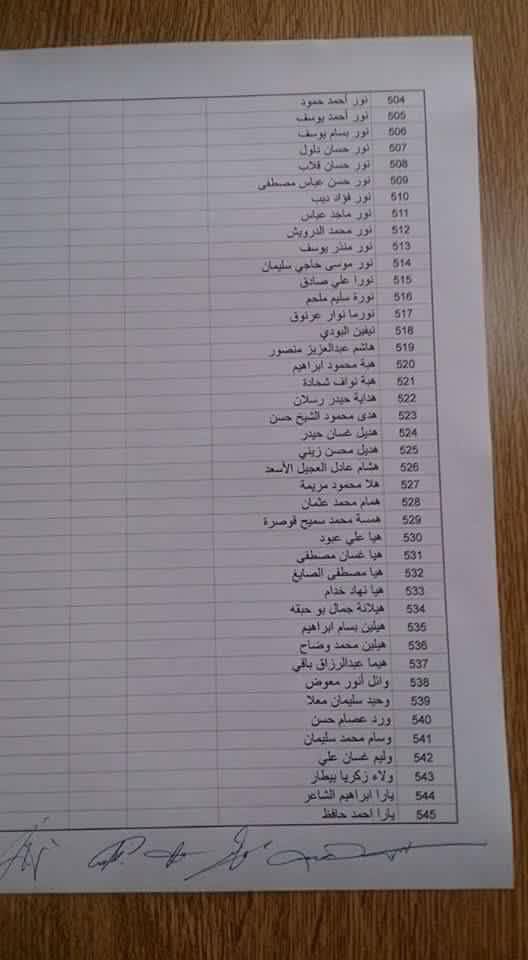 504 نور أحمد حمود
505 نور أحمد يوسف
506 نور بسام يوسف
507 نور حسان دلول
508 نور حسان قلاب
509 نور حسن عباس مصطفى
510 نور فؤاد ديب
511 نور ماجد عباس
512 نور محمد الدرويش
513 نور منذر يوسف
514 نور موسى حاجي سليمان
515 نورا علي صادق
516 نورة سليم ملحم
517 نورما نوار عرنوق
518 نيفين البودي
519 هاشم عبدالعزيز منصور
520 هبة محمود ابراهيم
521 هبة نواف شحادة
522 هداية حيدر رسلان
523 هدى محمود الشيخ حسن
524 هديل غسان حيدر
525 هديل محسن زيني
526 هشام عادل العجيل الأسعد
527 هلا محمود مريمة
528 همام محمد عثمان
529 همسة محمد سميح قوصرة
530 هيا علي عبود
531 هيا غسان مصطفى
532 هيا مصطفى الصايغ
533 هيا نهاد خدام
534 هيلانة جمال بو حبقه
535 هيلين بسام ابراهيم
536 هيلين محمد وضاح
537 هيما عبدالرزاق باقي
538 وائل أنور معوض
539 وحيد سليمان معلا
540 ورد عصام حسن
541 وسام محمد سليمان
542 وليم غسان علي
543 ولاء زكريا بيطار
544 يارا ابراهيم الشاعر
545 يارا احمد حافظ